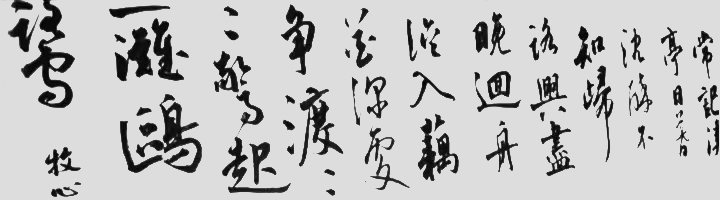 常記溪
亭日暮
沈醉不
知歸
路興盡
晚迴舟
誤入藕
花深處
争渡〻
〻驚起
一灘鷗
鷺
牧心